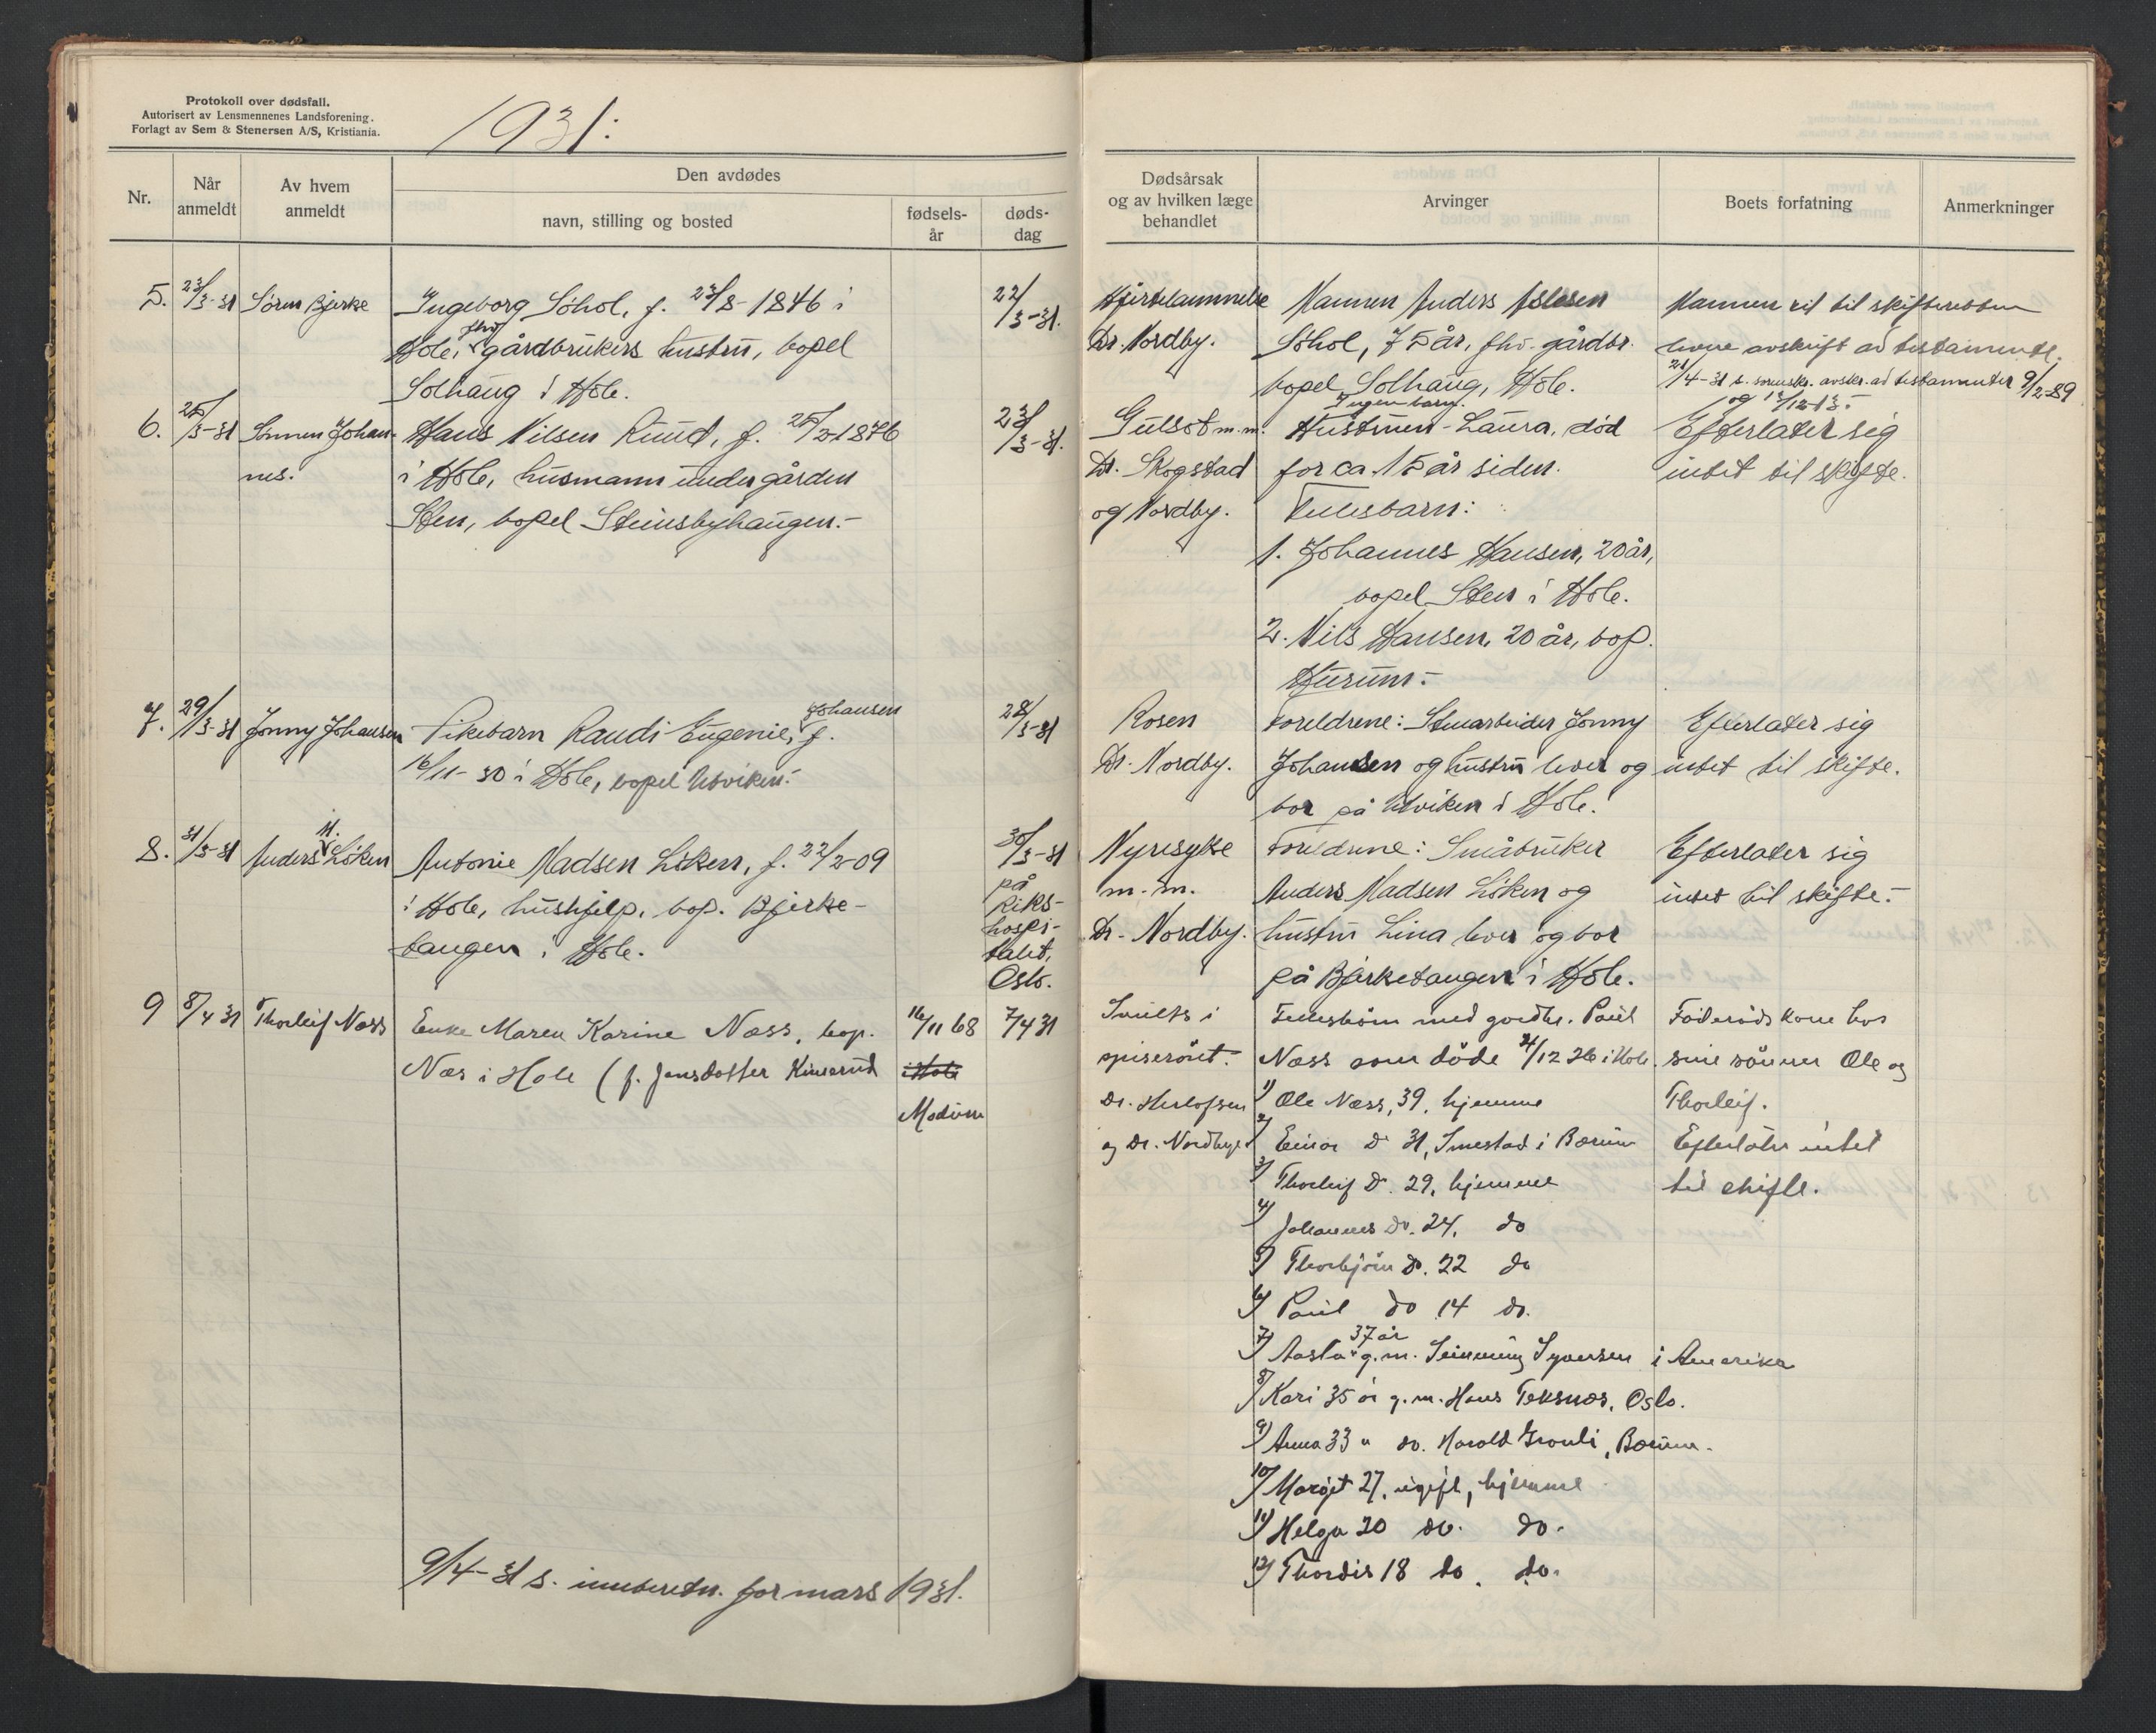 Protokoll over dødsfall.
Autorisert av Lensmennenes Landsforening.
Forlagt av Sem & Stenersen A/S, Kristiania.
1931:
Nr.
Når anmeldt
Av hvem anmeldt
Den avdødes
navn, stilling og bosted
fødsels-år
døds-dag
5. 23/3-31 Sören Bjerke Ingeborg Söhol, f. 23/8-1846 i 22/3-31.
Hole, fhv. gårdbrukers hustru, bopel
Solhaug i Hole.
6. 25/3-31 Sönnen Johan- Hans Nilsen Ruud, f. 25/2-1876 23/3-31.
nes. i Hole, husmann under gården
Sten, bopel Steinsbyhaugen.-
7. 29/3-31 Jonny Johansen Pikebarn Randi Eugenie Johansen, f. 28/3-31
16/11-30 i Hole, bopel Utviken.-
8. 31/3-31 Anders M. Löken Antonie Madsen Löken, f. 22/2-09 30/3-31
i Hole, hushjelp, bop. Bjerke- på Riks-
tangen i Hole. hospi-
talet,
Oslo.
9 8/4 31 Thorleif Næss Enke Maren Karine Næss, bop. 16/11 68 7/4 31
Næs i Hole (f. Jonsdatter i Hole
Modum
9/4-31 s. innberetn. for mars 1931.
Dødsårsak
og av hvilken læge
behandlet
Arvinger
Boets forfatning
Anmerkninger
Hjertelammelse Mannen Anders Aslesen Mannen vil til skifteretten
Dr. Nordby. Söhol, 75 år, fhv. gårdbr. levere avskrift av testamente.
bopel Solhaug, Hole. 21/4-31 s. avskr. av testamenter 9/2-89
Ingen barn. og 13/12-13.-
Gulsot m.m. Hustruen - Laura, død Efterlater sig
Dr. Skogstad for ca. 15 år siden. intet til skifte.
og Nordby. Fellesbarn:
1. Johannes Hansen, 20 år,
bopel Sten i Hole.
2. Nils Hansen, 20 år, bop.
Hurum.-
Rosen Foreldrene: Stenarbeider Jonny Efterlater sig
Dr. Nordby. Johansen og hustru lever og intet til skifte.
bor på Utviken i Hole.
Nyresyke Foreldrene: Småbruker Efterlater sig
m.m. Anders Madsen Löken og intet til skifte.-
Dr. Nordby. hustru Lina lever og bor
på Bjerketangen i Hole.
i Fellesbörn med gårdbr. Paul Föderådskone hos
spiseröret. Næss som döde 21/12 26 i Hole. sine sönner Ole og
Dr. Herlofsen 1) Ole Næss, 39, hjemme Thorleif.
og Dr. Nordby. 2) Einar Do 31, Smestad i Bærum Efterlater intet
3) Thorleif Do. 29, hjemme til skifte.
4) Johannes Do. 24. do
5) Thorbjörn do. 22 do
6) Paul do 14 do.
7) Aasta 37 år g.m. Syversen i Amerika
8) Kari 35 år g.m. Hans Teksnæs, Oslo.
9) Anna 33 " do. Harald Granli, Bærum.
10) Margit 27, ugift, hjemme
11) Helga 20 do. do.
12) Thordis 18 do. do.